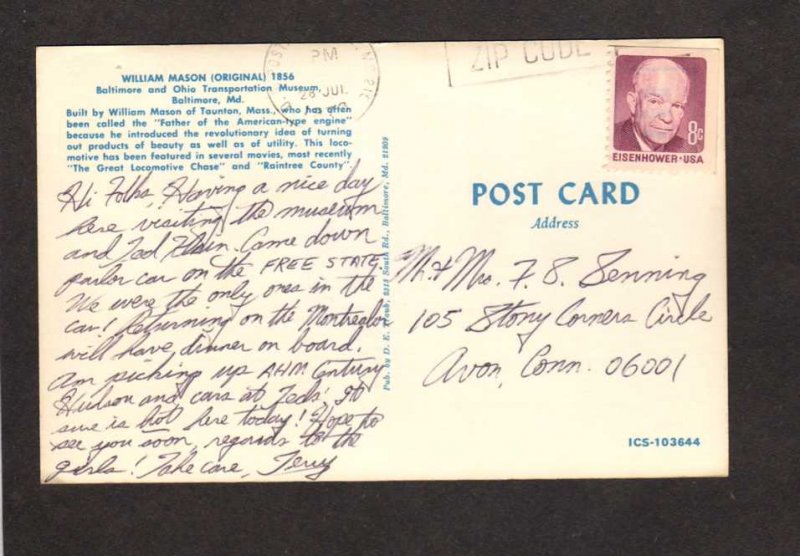 WILLIAM MASON (ORIGINAL) 1856
Baltimore and Ohio Transportation Museum,
Baltimore, Md.
Built by William Mason of Taunton, Mass., who has often
been called the "Father of the American-type engine"
because he introduced the revolutionary idea of turning
out products of beauty as well as of utility. This loco-
motive has been featured in several movies, most recently
"The Great Locomotive Chase" and "Raintree County".
Hi Folks, Having a nice day
here visiting the museum
and Ted Klein. Came down
parlor car on the FREE STATE.
We were the only ones in the
car! Returning on the Montrealer
will have dinner on board.
Am picking up AHM Century
Hudson and cars at Teds'. It
sure is hot here today! Hope to
see you soon, regards to the
girls! Take care, Terry
Pub. by D. E. Traub, 2213 South Rd., Baltimore, Md. 21209
PM
28 JUL
ZIP CODE
8c
EISENHOWER·USA
POST CARD
Address
Mr. + Mrs. F. S. Senning
105 Stony Corners Circle
Avon, Conn. 06001
ICS-103644